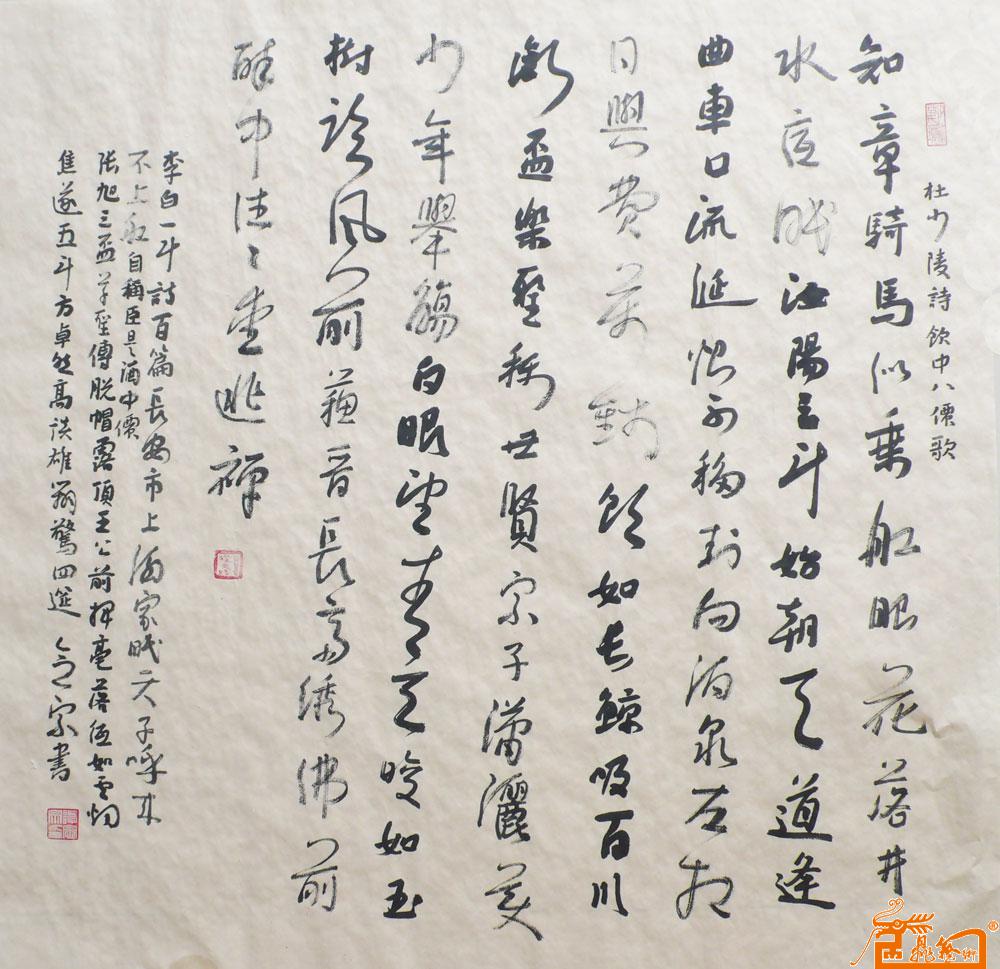 杜少陵詩飲中八僊歌
知章騎馬似乗船眼花落井
水底眠汝陽三斗始朝天道逢
曲車口流涎恨不移封向酒泉左相
日興費萬錢飲如長鯨吸百川
銜盃樂聖稱世賢宗子瀟灑美
少年舉觴白眼望青天皎如玉
樹臨風前蘇晉長齋繡佛前
醉中往々愛逃禪
李白一斗詩百篇長安市上酒家眠天子呼来
不上船自稱臣是酒中僊
張旭三盃草聖傳脱帽露頂王公前揮毫落紙如雲烟
焦遂五斗方卓然高談雄辯驚四筵 宗書